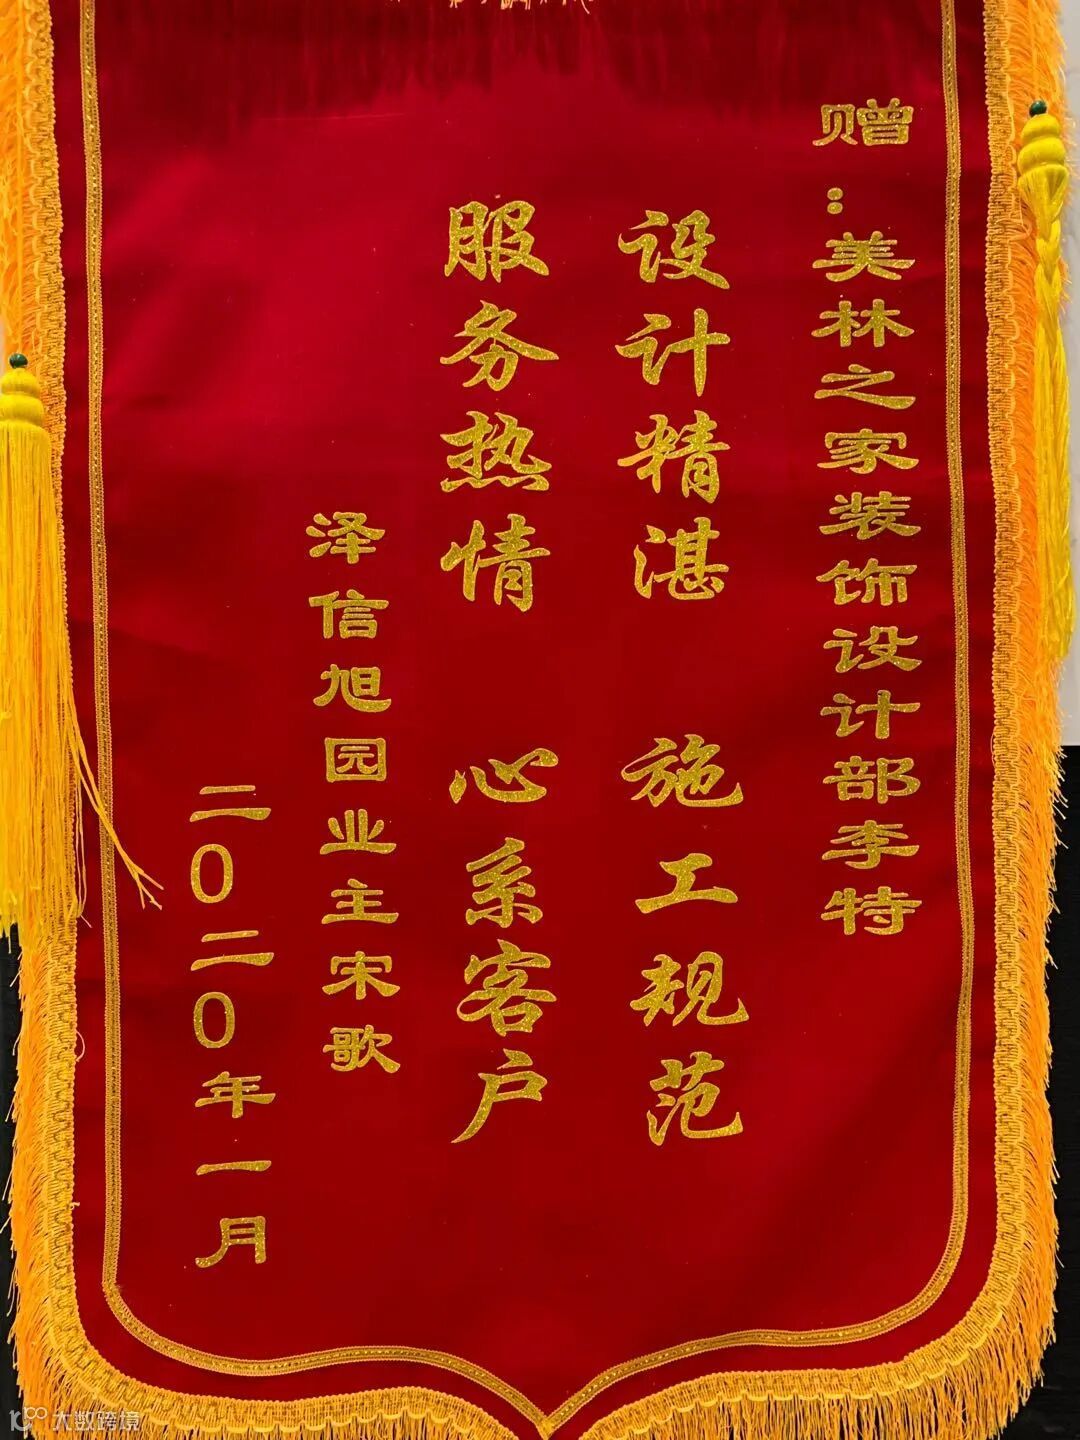 赠:美林之家装饰设计部李特
设计精湛 施工规范
服务热情 心系客户
泽信旭园业主宋歌
二0二0年一月
大数跨境